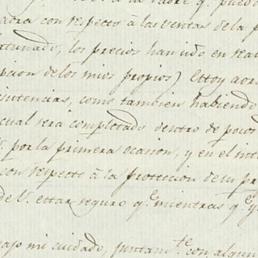 a la Padre q.e puedo
ahora con respecto à las ventas de la p
rtunado, los precios han ido en rea
pcion de los mios propios) Estoy aora
intencias, como tambien habiendo
cual sera completado dentro de pocos
por la primera ocasion, y en el int
con respecto à la proteccion de su pr
de V. estar seguro q.e mientras q.e
bajo mi cuidado, juntam.te con algun